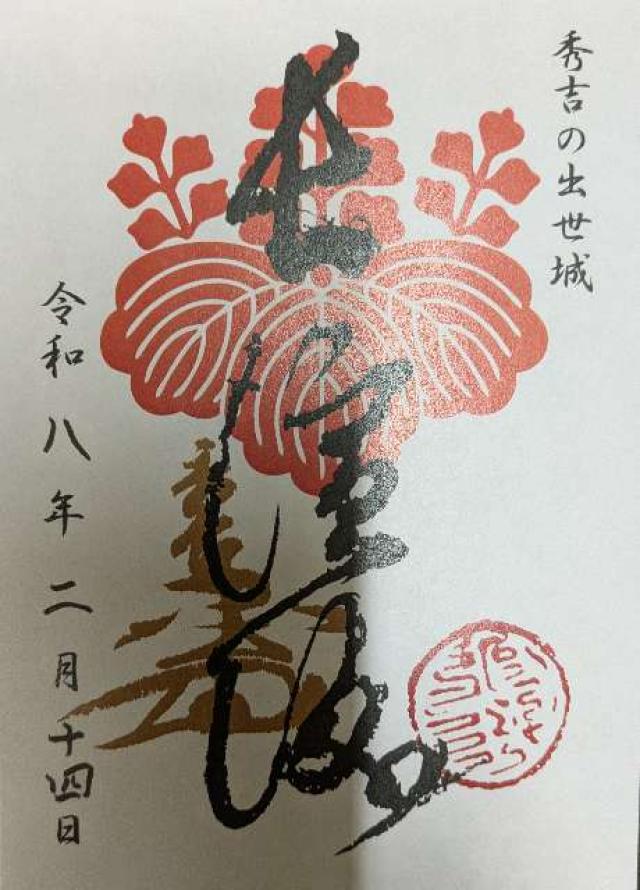 秀吉の出世城
長濱城
令和八年二月十四日